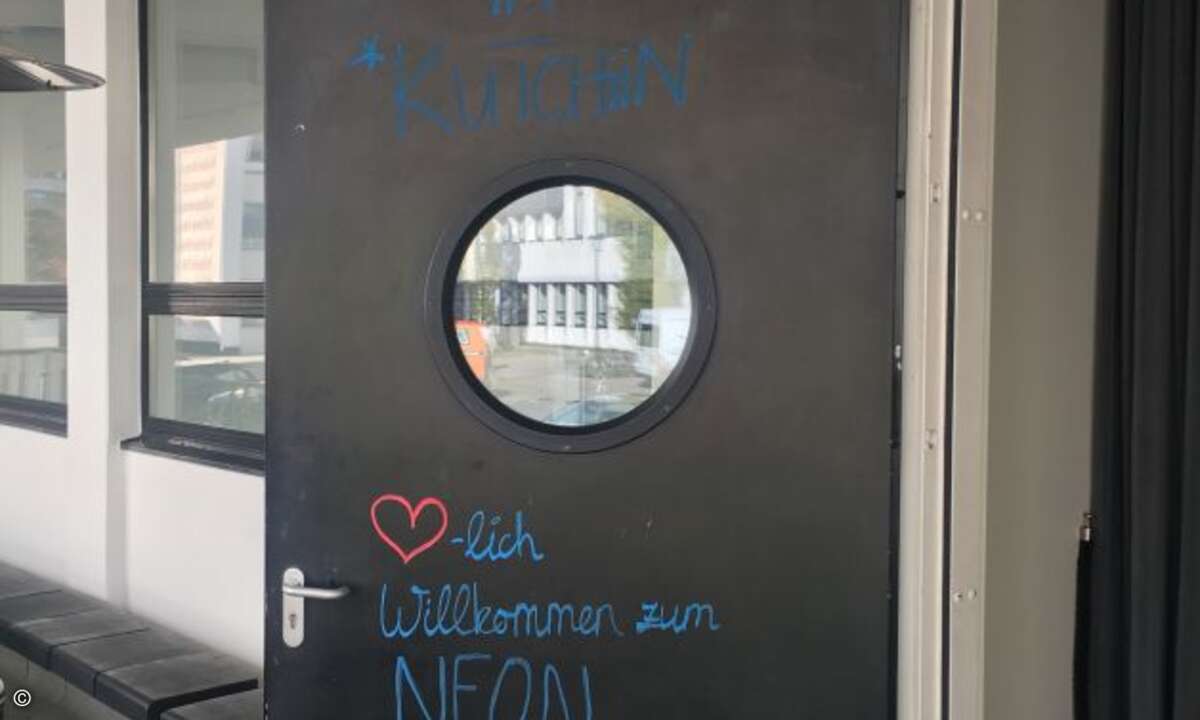 *KUTCHiiN
♥-lich
Willkommen zum
NEON
©